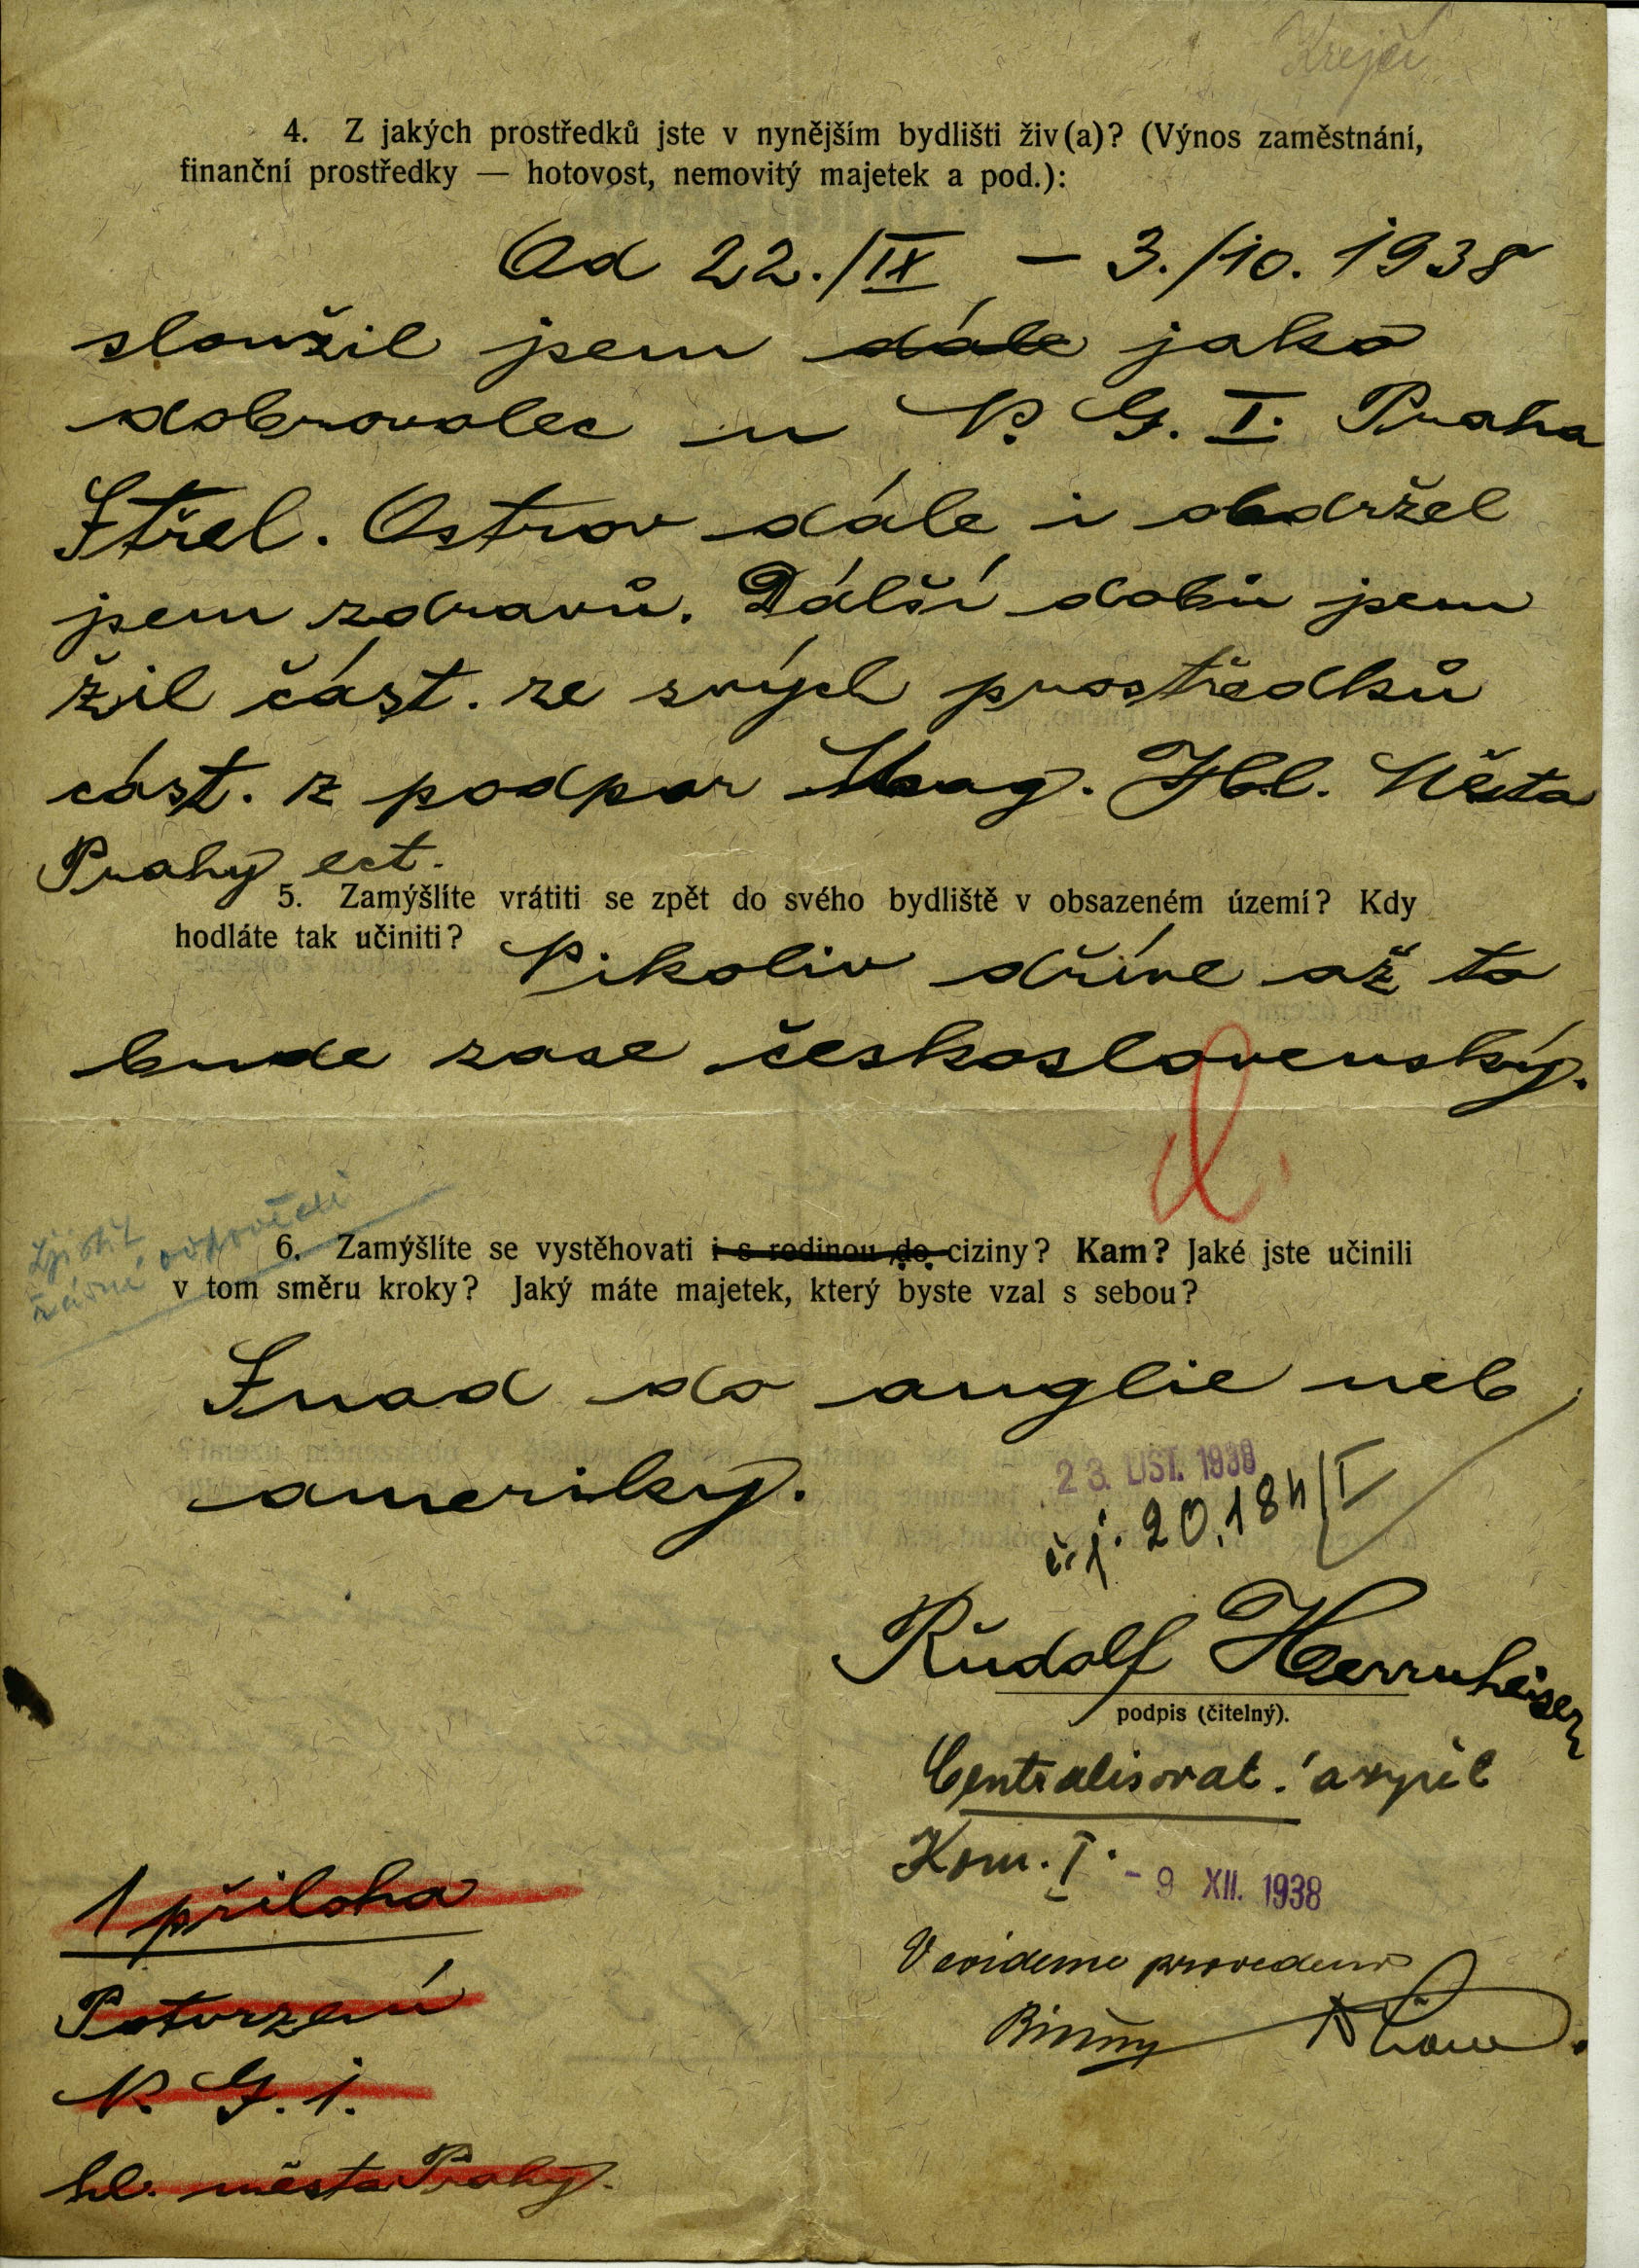 Krejčí
4. Z jakých prostředků jste v nynějším bydlišti živ(a)? (Výnos zaměstnání,
finanční prostředky — hotovost, nemovitý majetek a pod.):
Od 22./IX – 3./10. 1938
sloužil jsem dále jako
dobrovolec u N. G. I. Praha
Střel. Ostrov dále i obdržel
jsem zdravů. Dálší dobu jsem
žil část. ze svých prostředků
část. z podpor Mag. Hl. Města
Prahy ect.
5. Zamýšlíte vrátiti se zpět do svého bydliště v obsazeném území? Kdy
hodláte tak učiniti?
Nikoliv dříve až to
bude zase československý.
zjistit
6. Zamýšlíte se vystěhovati i s rodinou do ciziny? Kam? Jaké jste učinili
v tom směru kroky? Jaký máte majetek, který byste vzal s sebou?
Snad do anglie neb
ameriky.
23. LIST. 1938
č.j. 20.184/I
Rudolf Herrnheiser
podpis (čitelný).
Centralisovat! a
Kom. I. - 9 XII. 1938
V evidenci provedeno
1 příloha
Potvrzení
N. G. 1.
hl. města Prahy.